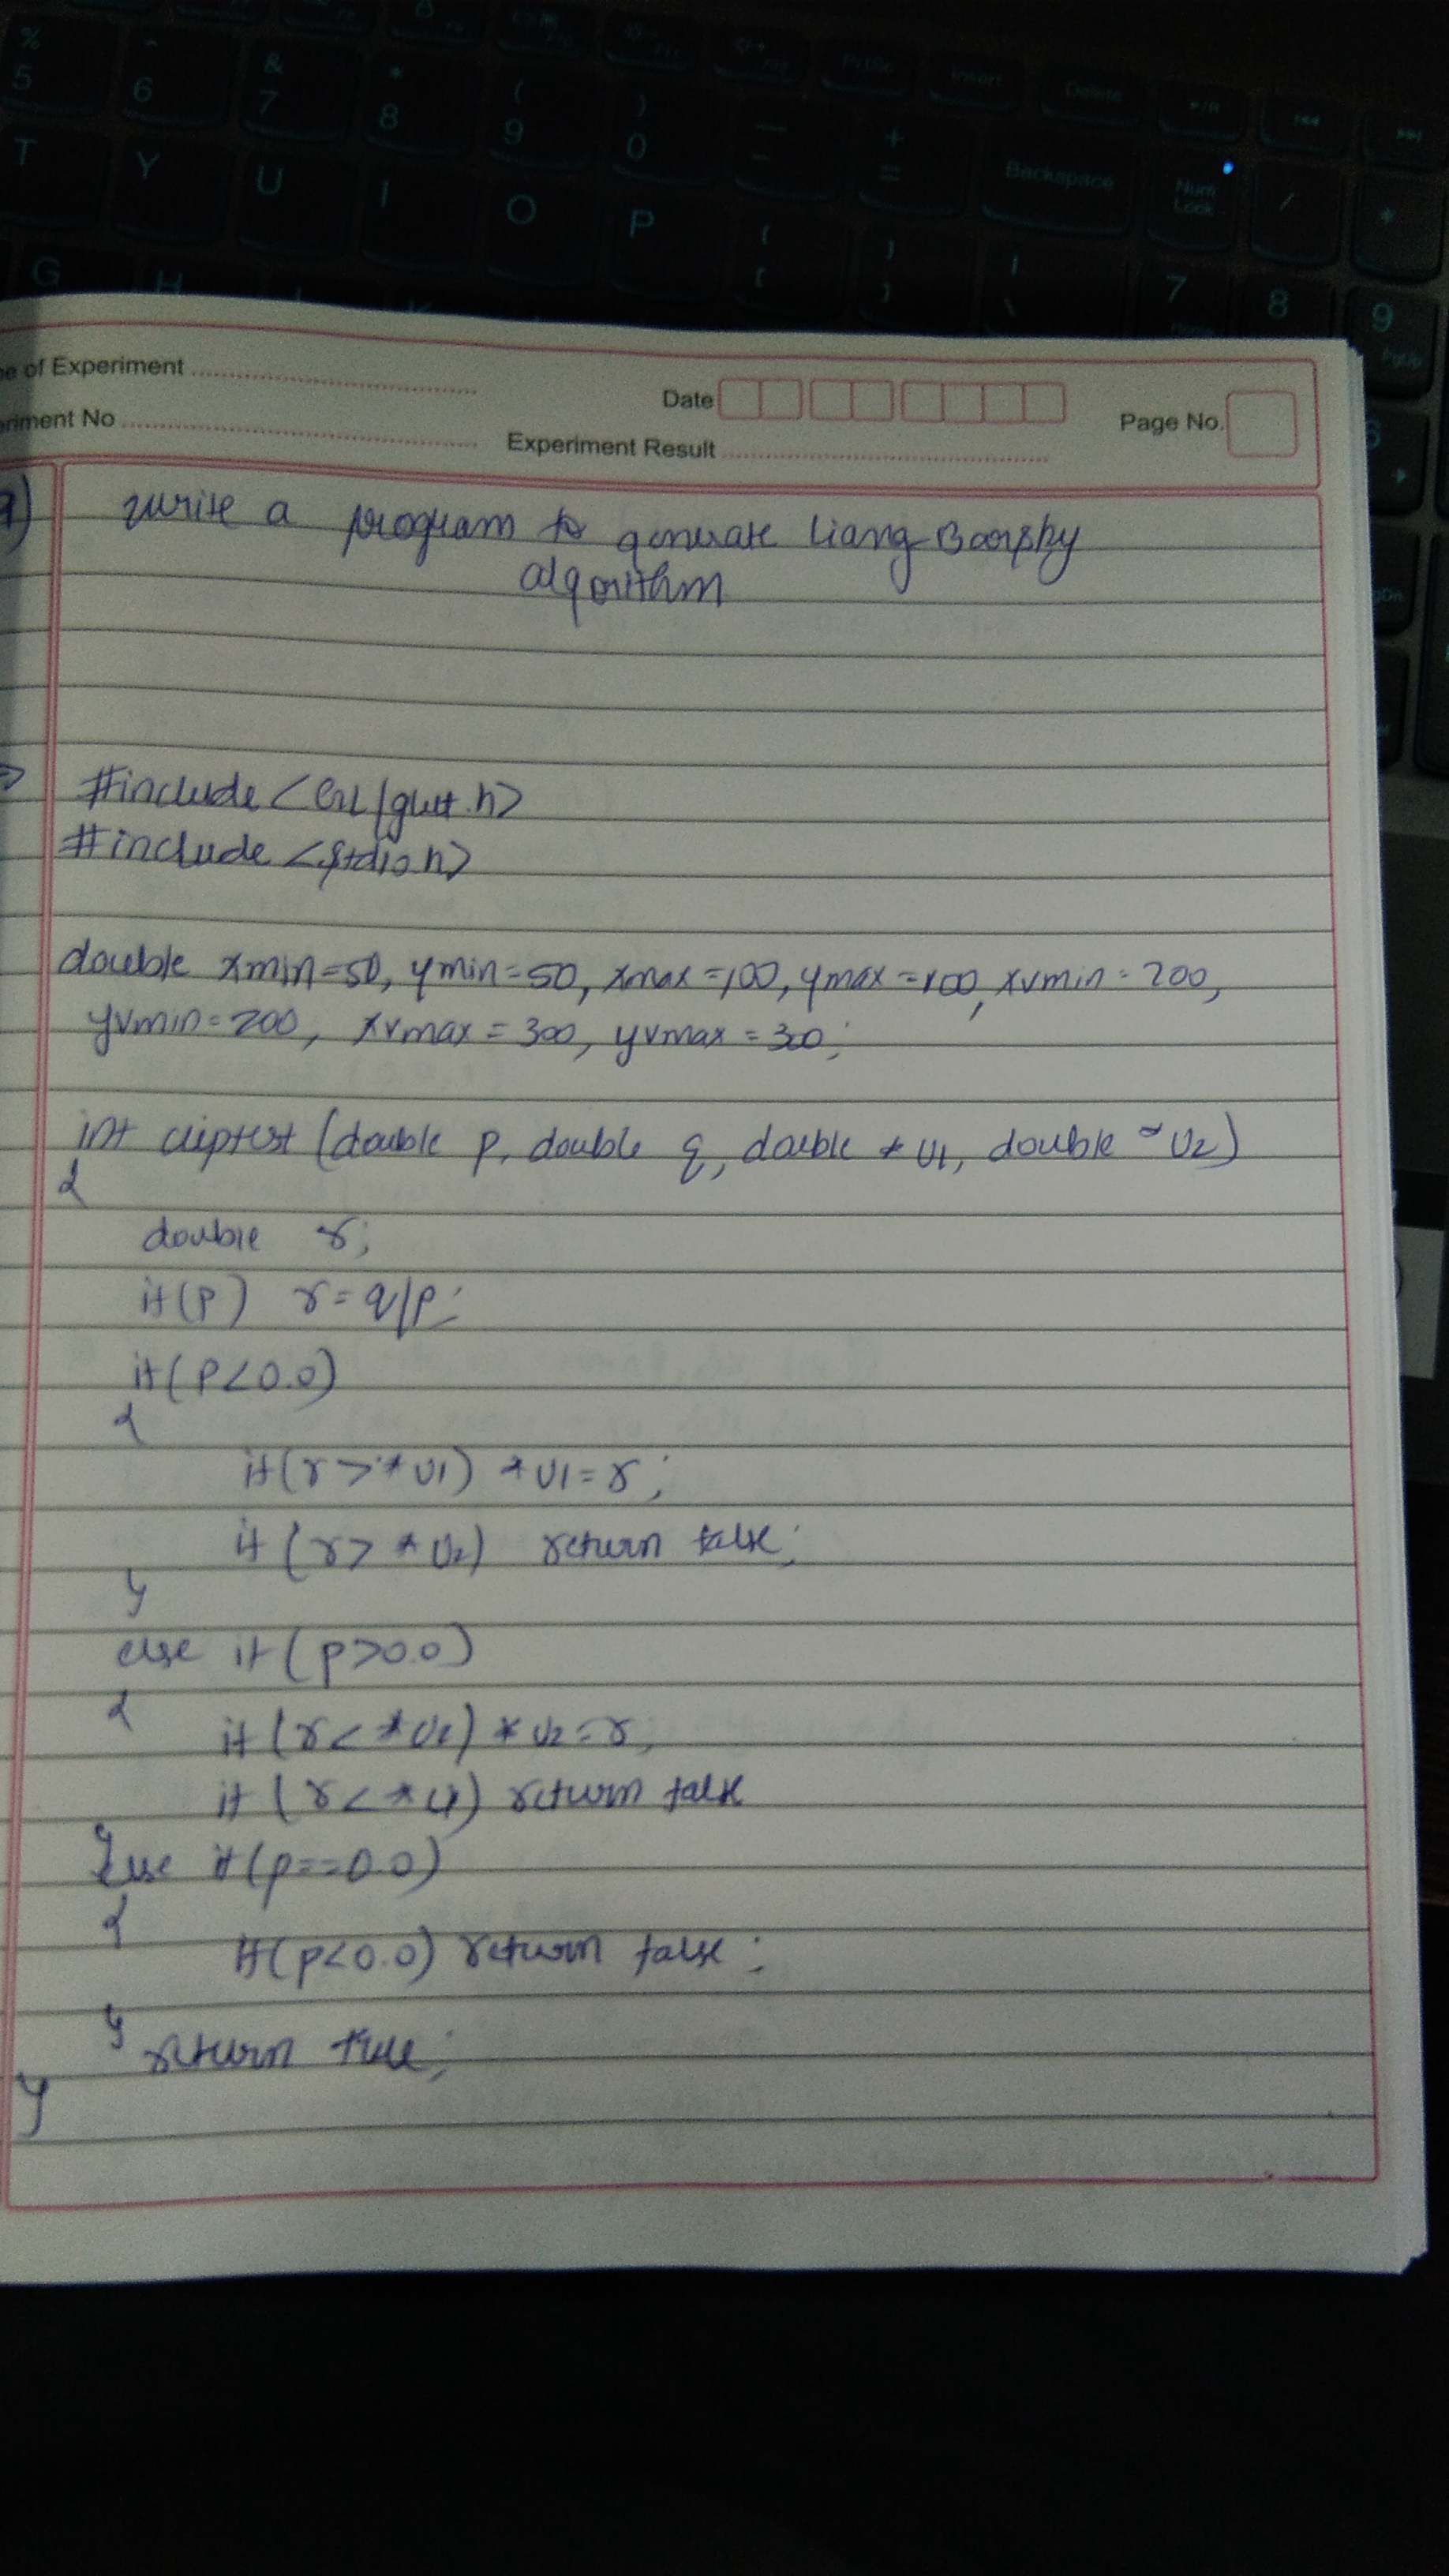 % & * ( ) _ +
5 6 7 8 9 0 - = Backspace Num Lock / *
PrtSc Insert Delete
T Y U I O P { [ } ] | \ 7 8 9
G H
e of Experiment
Date
Page No.
riment No
Experiment Result
9) write a program to generate Liang Barsky
algorithm
=> #include <GL/glut.h>
#include <stdio.h>
double xmin=50, ymin=50, xmax=100, ymax=100, xvmin=200,
yvmin=200, xvmax=300, yvmax=300;
int cliptest (double p, double q, double *u1, double *u2)
{
double r;
if(p) r=q/p;
if(p<0.0)
{
if(r>*u1) *u1=r;
if(r>*u2) return false;
}
else if(p>0.0)
{
if(r<*u2) *u2=r;
if(r<*u1) return false
}
else if(p==0.0)
{
if(p<0.0) return false;
}
return true;
}